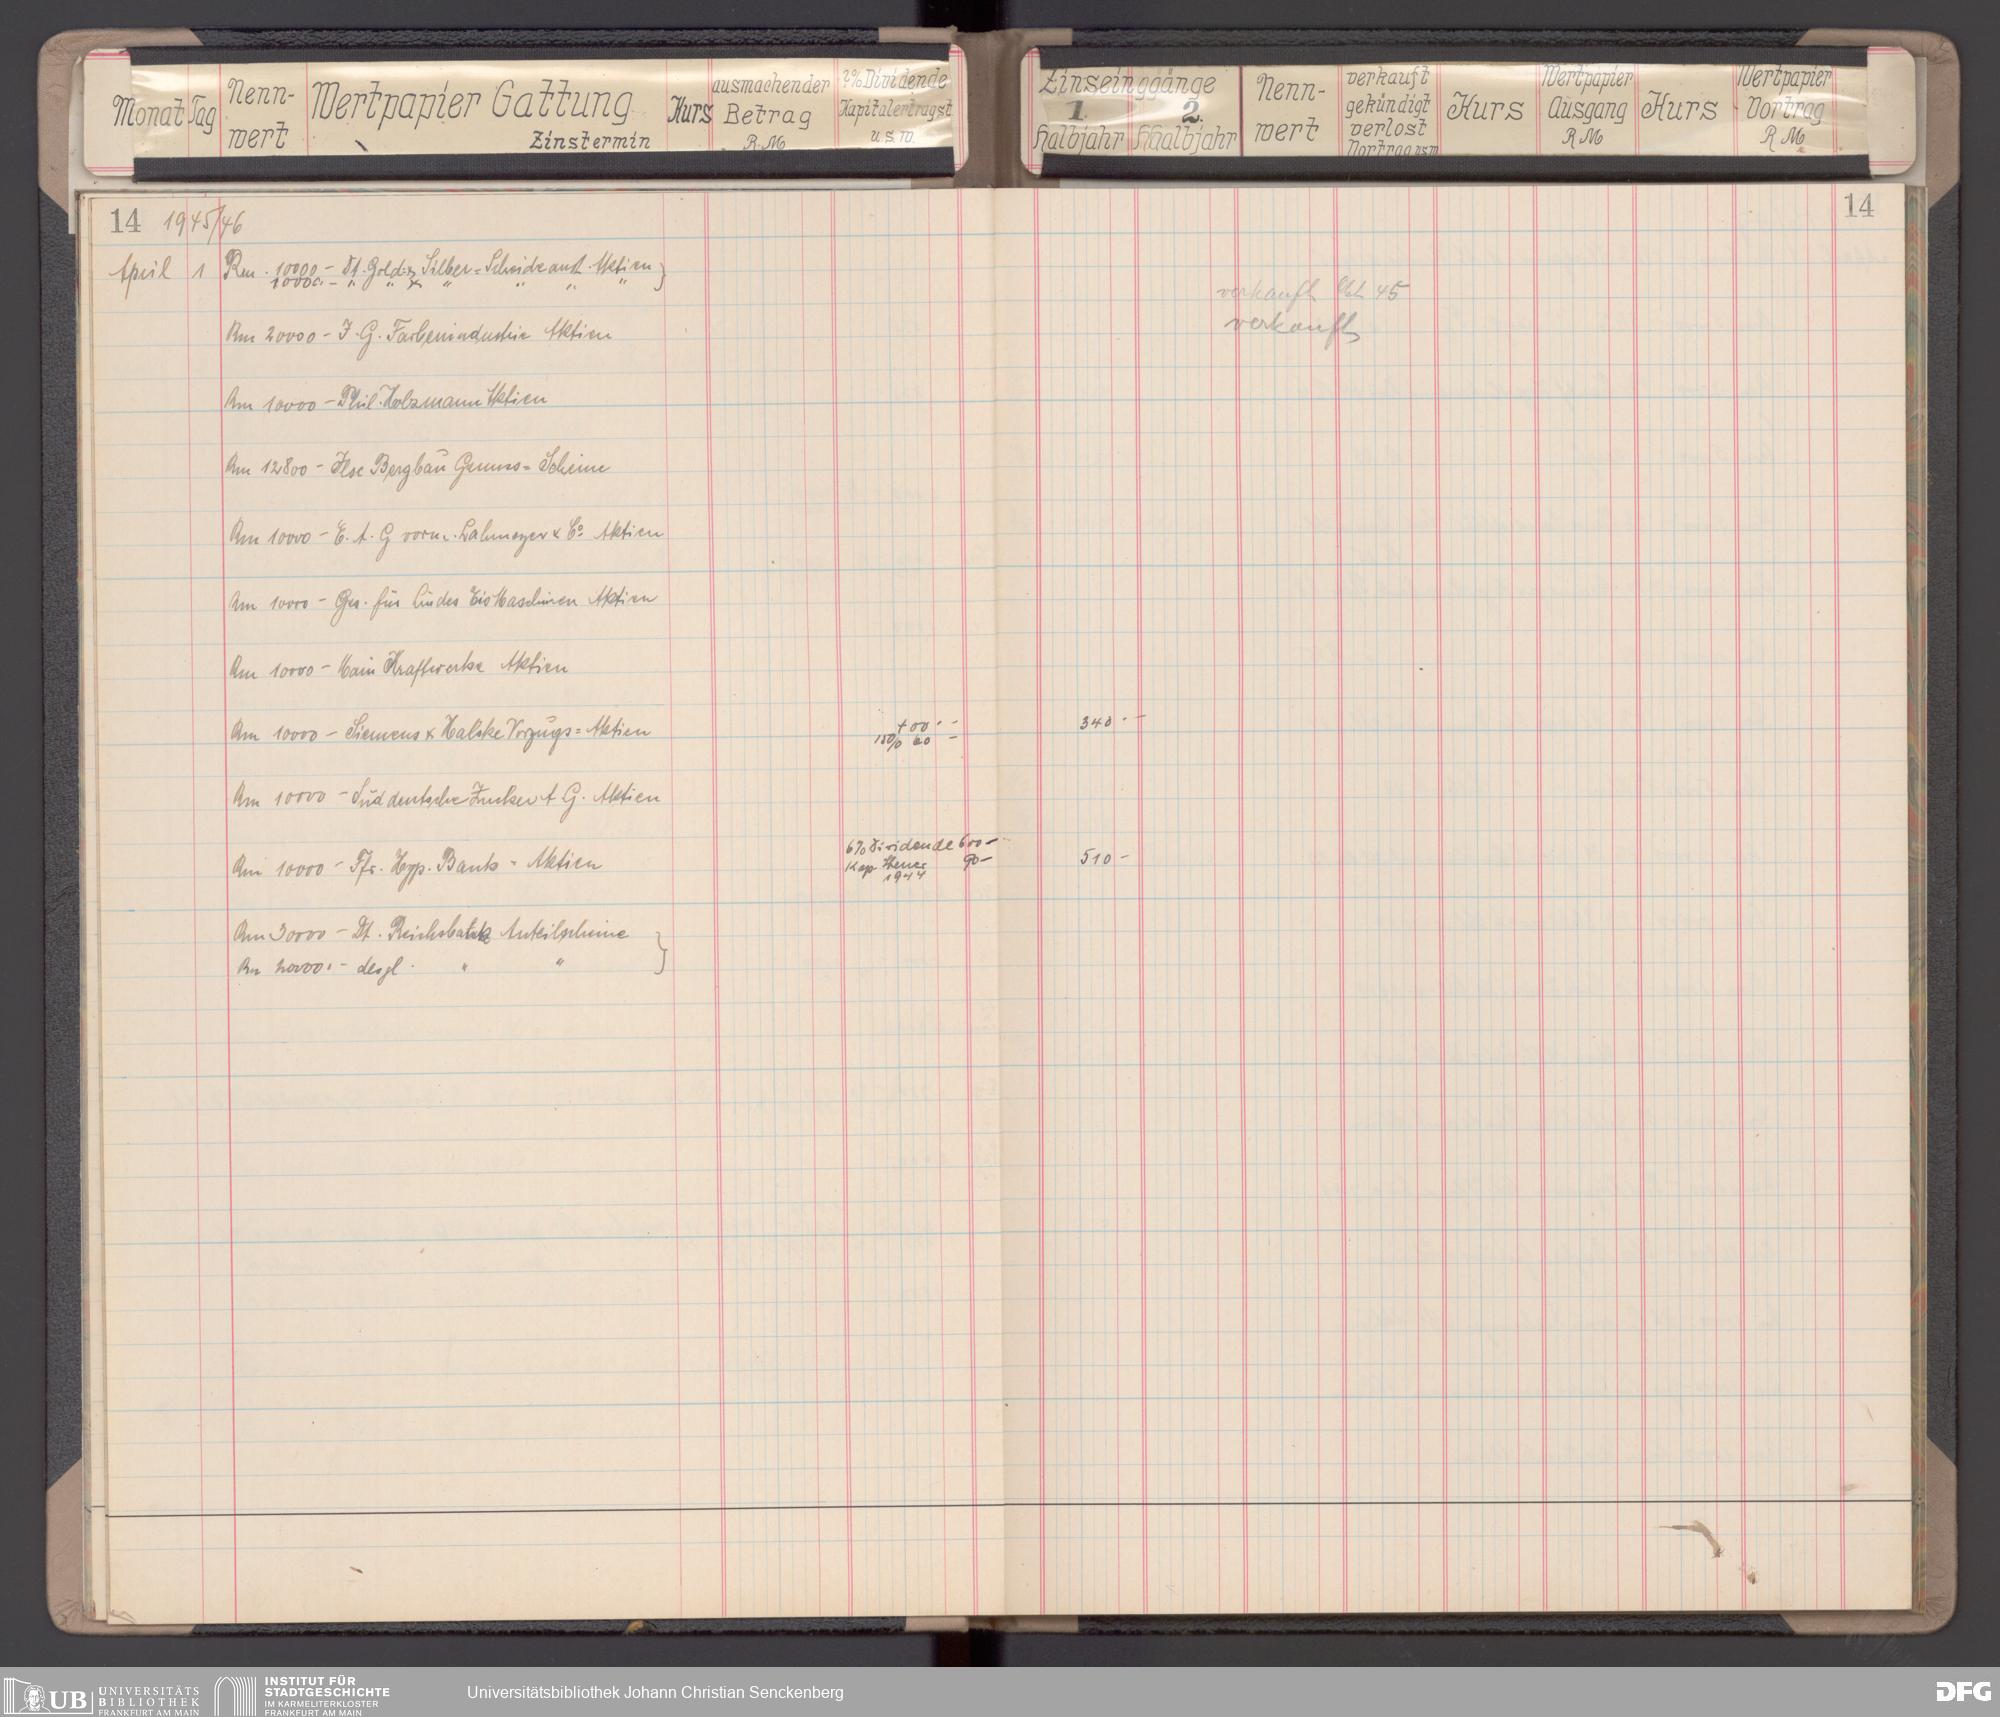 Monat Tag Nenn-wert Wertpapier Gattung Zinstermin Kurs ausmachender Betrag R.M 2% Dividende Kapitalertragst u.s.w.
Zinseinggänge 1. Halbjahr 2. HHaalbjahr Nenn-wert verkauft gekündigt verlost Vortrag usw Kurs Wertpapier Ausgang RM Kurs Wertpapier Vortrag RM
14 1945/46 14
April 1 Rm. 10000 – Dt. Gold- & Silber= Scheideanst. Aktien }
10000.– " " & " " " "
verkauft Okt 45
verkauft
Rm 20000 – I. G. Farbenindustrie Aktien
Rm 10000 – Phil. Holzmann Aktien
Rm 12800 – Ilse Bergbau Genuss= Scheine
Rm 10000 – E. A. G vorm. Lahmeyer & Co Aktien
Rm 10000 – Ges. für Lindes Eis Maschinen Aktien
Rm 10000 – Main Kraftwerke Aktien
Rm 10000 – Siemens & Halske Vorzugs= Aktien 400.– 340.–
15% 60 –
Rm 10000 – Süddeutsche Zucker A G. Aktien
6% Dividende 600 –
Rm 10000 – Ffr. Hyp. Bank = Aktien Kap Steuer 90 – 510 –
1944
Rm 30000 – Dt. Reichsbank Anteilscheine }
Rm 20000.– desgl. " "
UB UNIVERSITÄTS
BIBLIOTHEK
FRANKFURT AM MAIN
INSTITUT FÜR
STADTGESCHICHTE
IM KARMELITERKLOSTER
FRANKFURT AM MAIN
Universitätsbibliothek Johann Christian Senckenberg
DFG